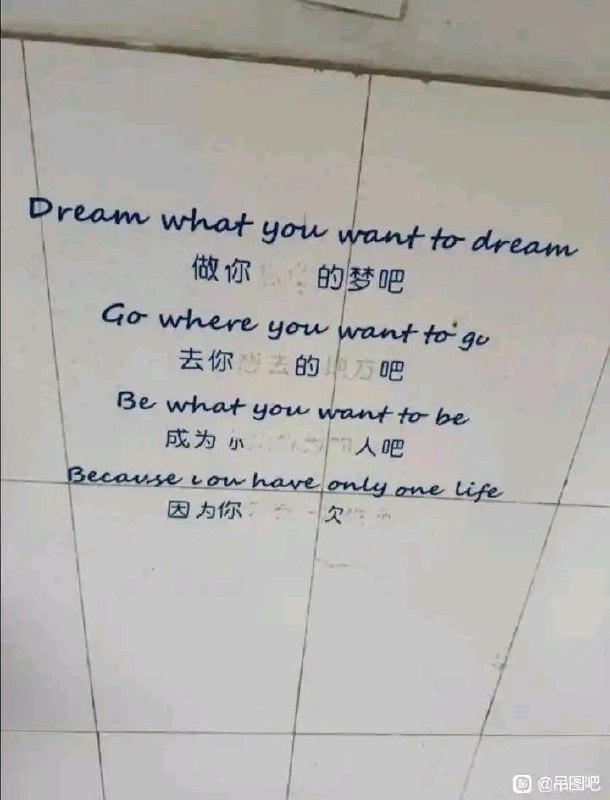 Dream what you want to dream
做你 的梦吧
Go where you want to go
去你想去的地方吧
Be what you want to be
成为 人吧
Because you have only one life
因为你
@吊图吧